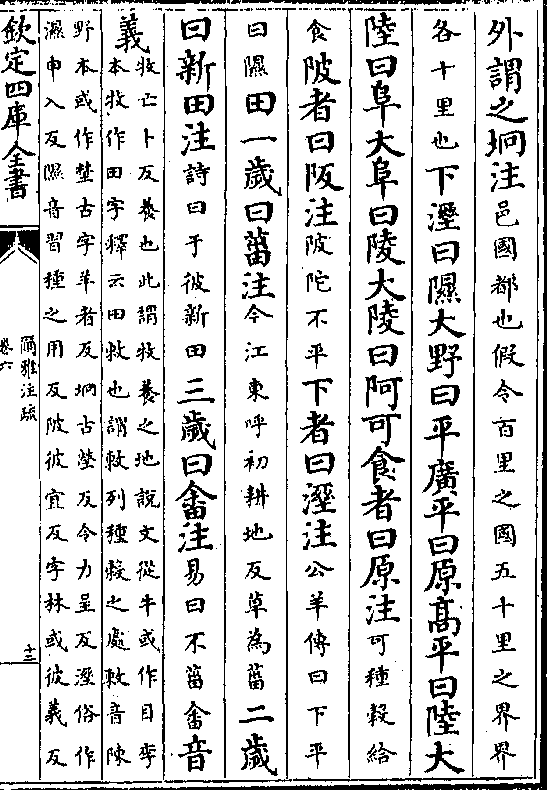 外謂之坰注邑國都也假令百里之國五十里之界界
各十里也下溼曰隰大野曰平廣平曰原高平曰陸大
陸曰阜大阜曰陵大陵曰阿可食者曰原注可種穀給
食陂者曰阪注陂陀不平下者曰溼注公羊傳曰下平
曰隰田一歲曰菑注今江東呼初耕地反草為菑二歲
曰新田注詩曰于彼新田三歲曰畬注易曰不菑畬音
義牧亡卜反養也此謂牧養之地說文從牛或作目孿
本牧作田字釋云田敕也謂敕列種穀之處敕音陳
野本或作埜古字羊者反坰古熒反令力呈反溼俗作
濕申入反隰音習種之用反陂彼宜反字林或彼義反
欽定四庫全書
爾雅注疏
卷六
十二